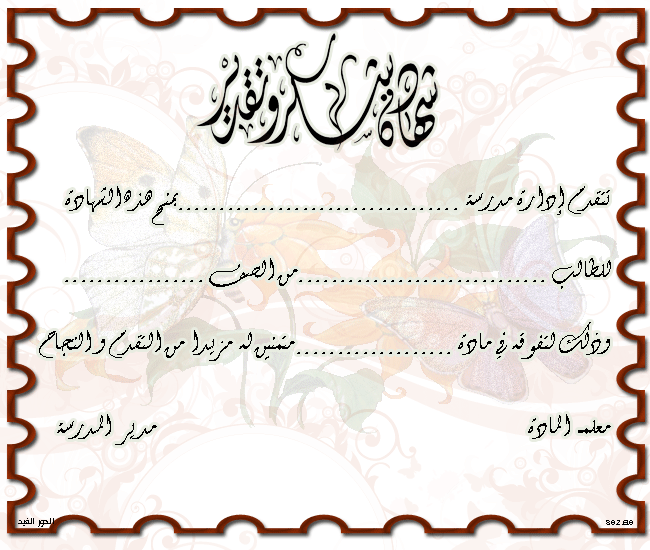 شهادة شكر وتقدير
تتقدم إدارة مدرسة ...................................بمنح هذه الشهادة
للطالب ...............................من الصف .................
وذلك لتفوقه في مادة ....................متمنين له مزيدا من التقدم والنجاح
معلمة المادة
مدير المدرسة